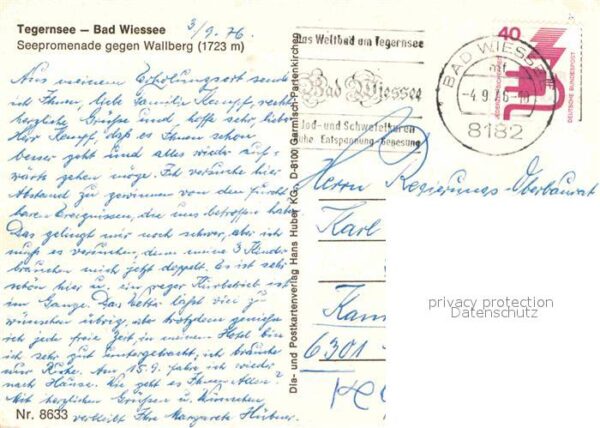 Tegernsee — Bad Wiessee
Seepromenade gegen Wallberg (1723 m)
3/9. 76.
Aus meinem Erholungsort sende
ich Ihnen, liebe Familie Kempf, recht
herzliche Grüße und hoffe sehr, lieber
Herr Kempf, daß es Ihnen schon
besser geht und alles wieder auf-
wärts gehen möge. Ich versuche hier
Abstand zu gewinnen von den furcht-
baren Ereignissen, die uns betroffen hat.
Das gelingt mir noch schwer, aber ich
muß es versuchen, denn meine 3 Kinder
brauchen mich jetzt doppelt. Es ist sehr
schön hier u. ein reger Kurbetrieb ist
im Gange. Das Wetter läßt viel zu
wünschen übrig, aber trotzdem genieße
ich jede freie Zeit, in meinem Hotel bin
ich sehr gut untergebracht, ich brauche
nur Ruhe. Am 15.9. fahre ich wieder
nach Hause. Wie geht es Ihnen Allen?
Mit herzlichen Grüßen u. Wünschen,
verbleibt Ihre Margarete Hübner
Nr. 8633
Dia- und Postkartenverlag Hans Huber KG, D-8100 Garmisch-Partenkirchen
Das Weltbad am Tegernsee
Bad Wiessee
Jod- und Schwefelkuren
Ruhe Entspannung Genesung
BAD WIESSEE
mf
-4.9.76-10
8182
40
DEUTSCHE BUNDESPOST
Herrn Regierungs-Oberbaurat
Karl
Kam
6301
privacy protection
Datenschutz